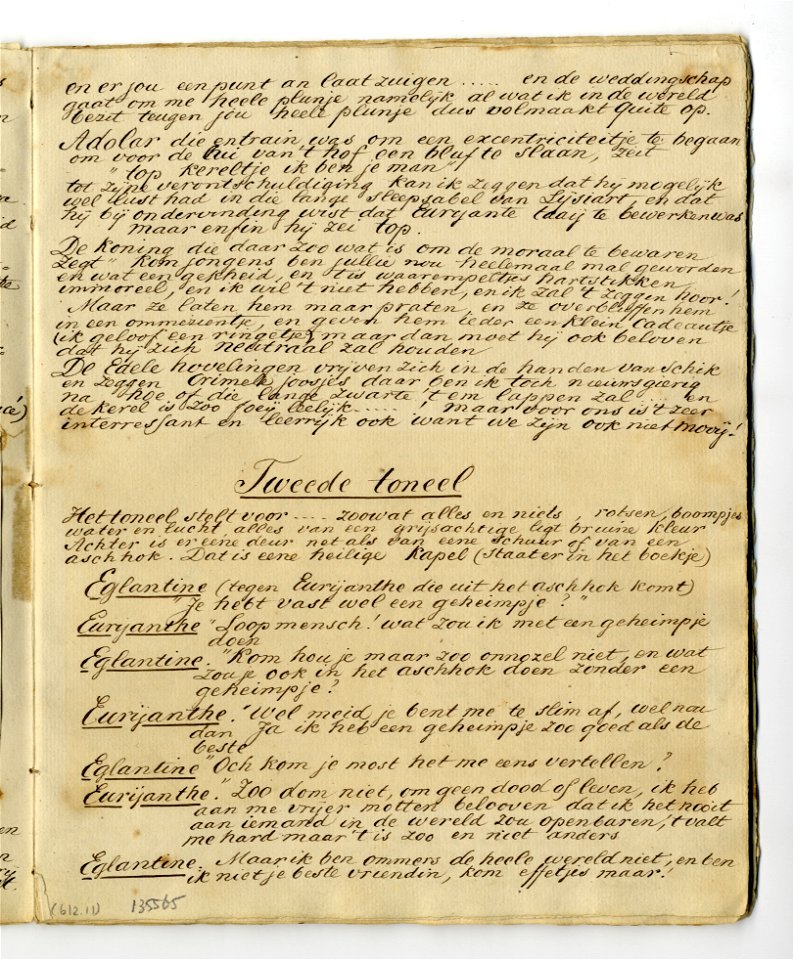 en er jou een punt an laat zuigen ..... en de weddingschap
gaat om me heele plunje namelijk al wat ik in de wereld
bezit teugen jou heele plunje dus volmaakt quite op.
Adolar die entrain was om een excentriciteitje te begaan
om voor de lui van 't hof een bluf te slaan, zeit
" top kereltje ik ben je man"
tot zijne verontschuldiging kan ik zeggen dat hij mogelijk
wel lust had in die lange sleepsabel van Lijsiart, en dat
hij bij ondervinding wist dat Eurijante taaij te bewerken was
maar enfin hij zei top.
De koning die daar zoo wat is om de moraal te bewaren
zegt " kom jongens ben jullie nou heelemaal mal geworden
en wat een gekheid, en tis waarempeltjes hartstikken
immoreel, en ik wil 't niet hebben, en ik zal 't zeggen hoor!
Maar ze laten hem maar praten, en ze overbluffen hem
in een ommezientje, en geven hem ieder een klein cadeautje
(ik geloof een ringetje) maar dan moet hij ook beloven
dat hij zich neutraal zal houden
De Edele hovelingen vrijven zich in de handen van schik
en zeggen Crimele joosjes daar ben ik toch nieuwsgierig
na hoe of die lange zwarte 't em lappen zal .... en
de kerel is zoo foeij leelijk .....! maar voor ons is 't zeer
interressant en leerrijk ook want we zijn ook niet mooij!
Tweede toneel
Het toneel stelt voor .... zoowat alles en niets, rotsen, boompjes
water en lucht alles van een grijsachtige ligt bruine kleur
Achter is er eene deur net als van eene schuur of van een
aschhok. Dat is eene heilige kapel (staat er in het boekje)
Eglantine (tegen Eurijanthe die uit het aschhok komt)
"Je hebt vast wel een geheimpje?"
Eurijanthe "Loop mensch! wat zou ik met een geheimpje
doen
Eglantine. "Kom hou je maar zoo onnozel niet, en wat
zou je ook in het aschhok doen zonder een
geheimpje?
Eurijanthe. "Wel meid je bent me te slim af, wel nou
dan Ja ik heb een geheimpje zoo goed als de
beste
Eglantine "Och kom je most het me eens vertellen?
Eurijanthe. "Zoo dom niet, om geen dood of leven, ik heb
aan me vrijer motten belooven dat ik het nooit
aan iemand in de wereld zou openbaren, 't valt
me hard maar 't is zoo en niet anders
Eglantine. Maar ik ben ommers de heele wereld niet, en ben
ik niet je beste vriendin, kom effetjes maar!
(612.11) 135565